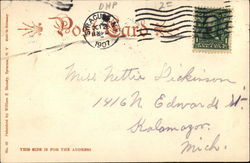 OHP 12c
SYRACUSE, N.Y.
1907
Post Card
Miss Nettie Dickinson
1416 N Edwards St.
Kalamazoo.
Mich.
THIS SIDE IS FOR THE ADDRESS